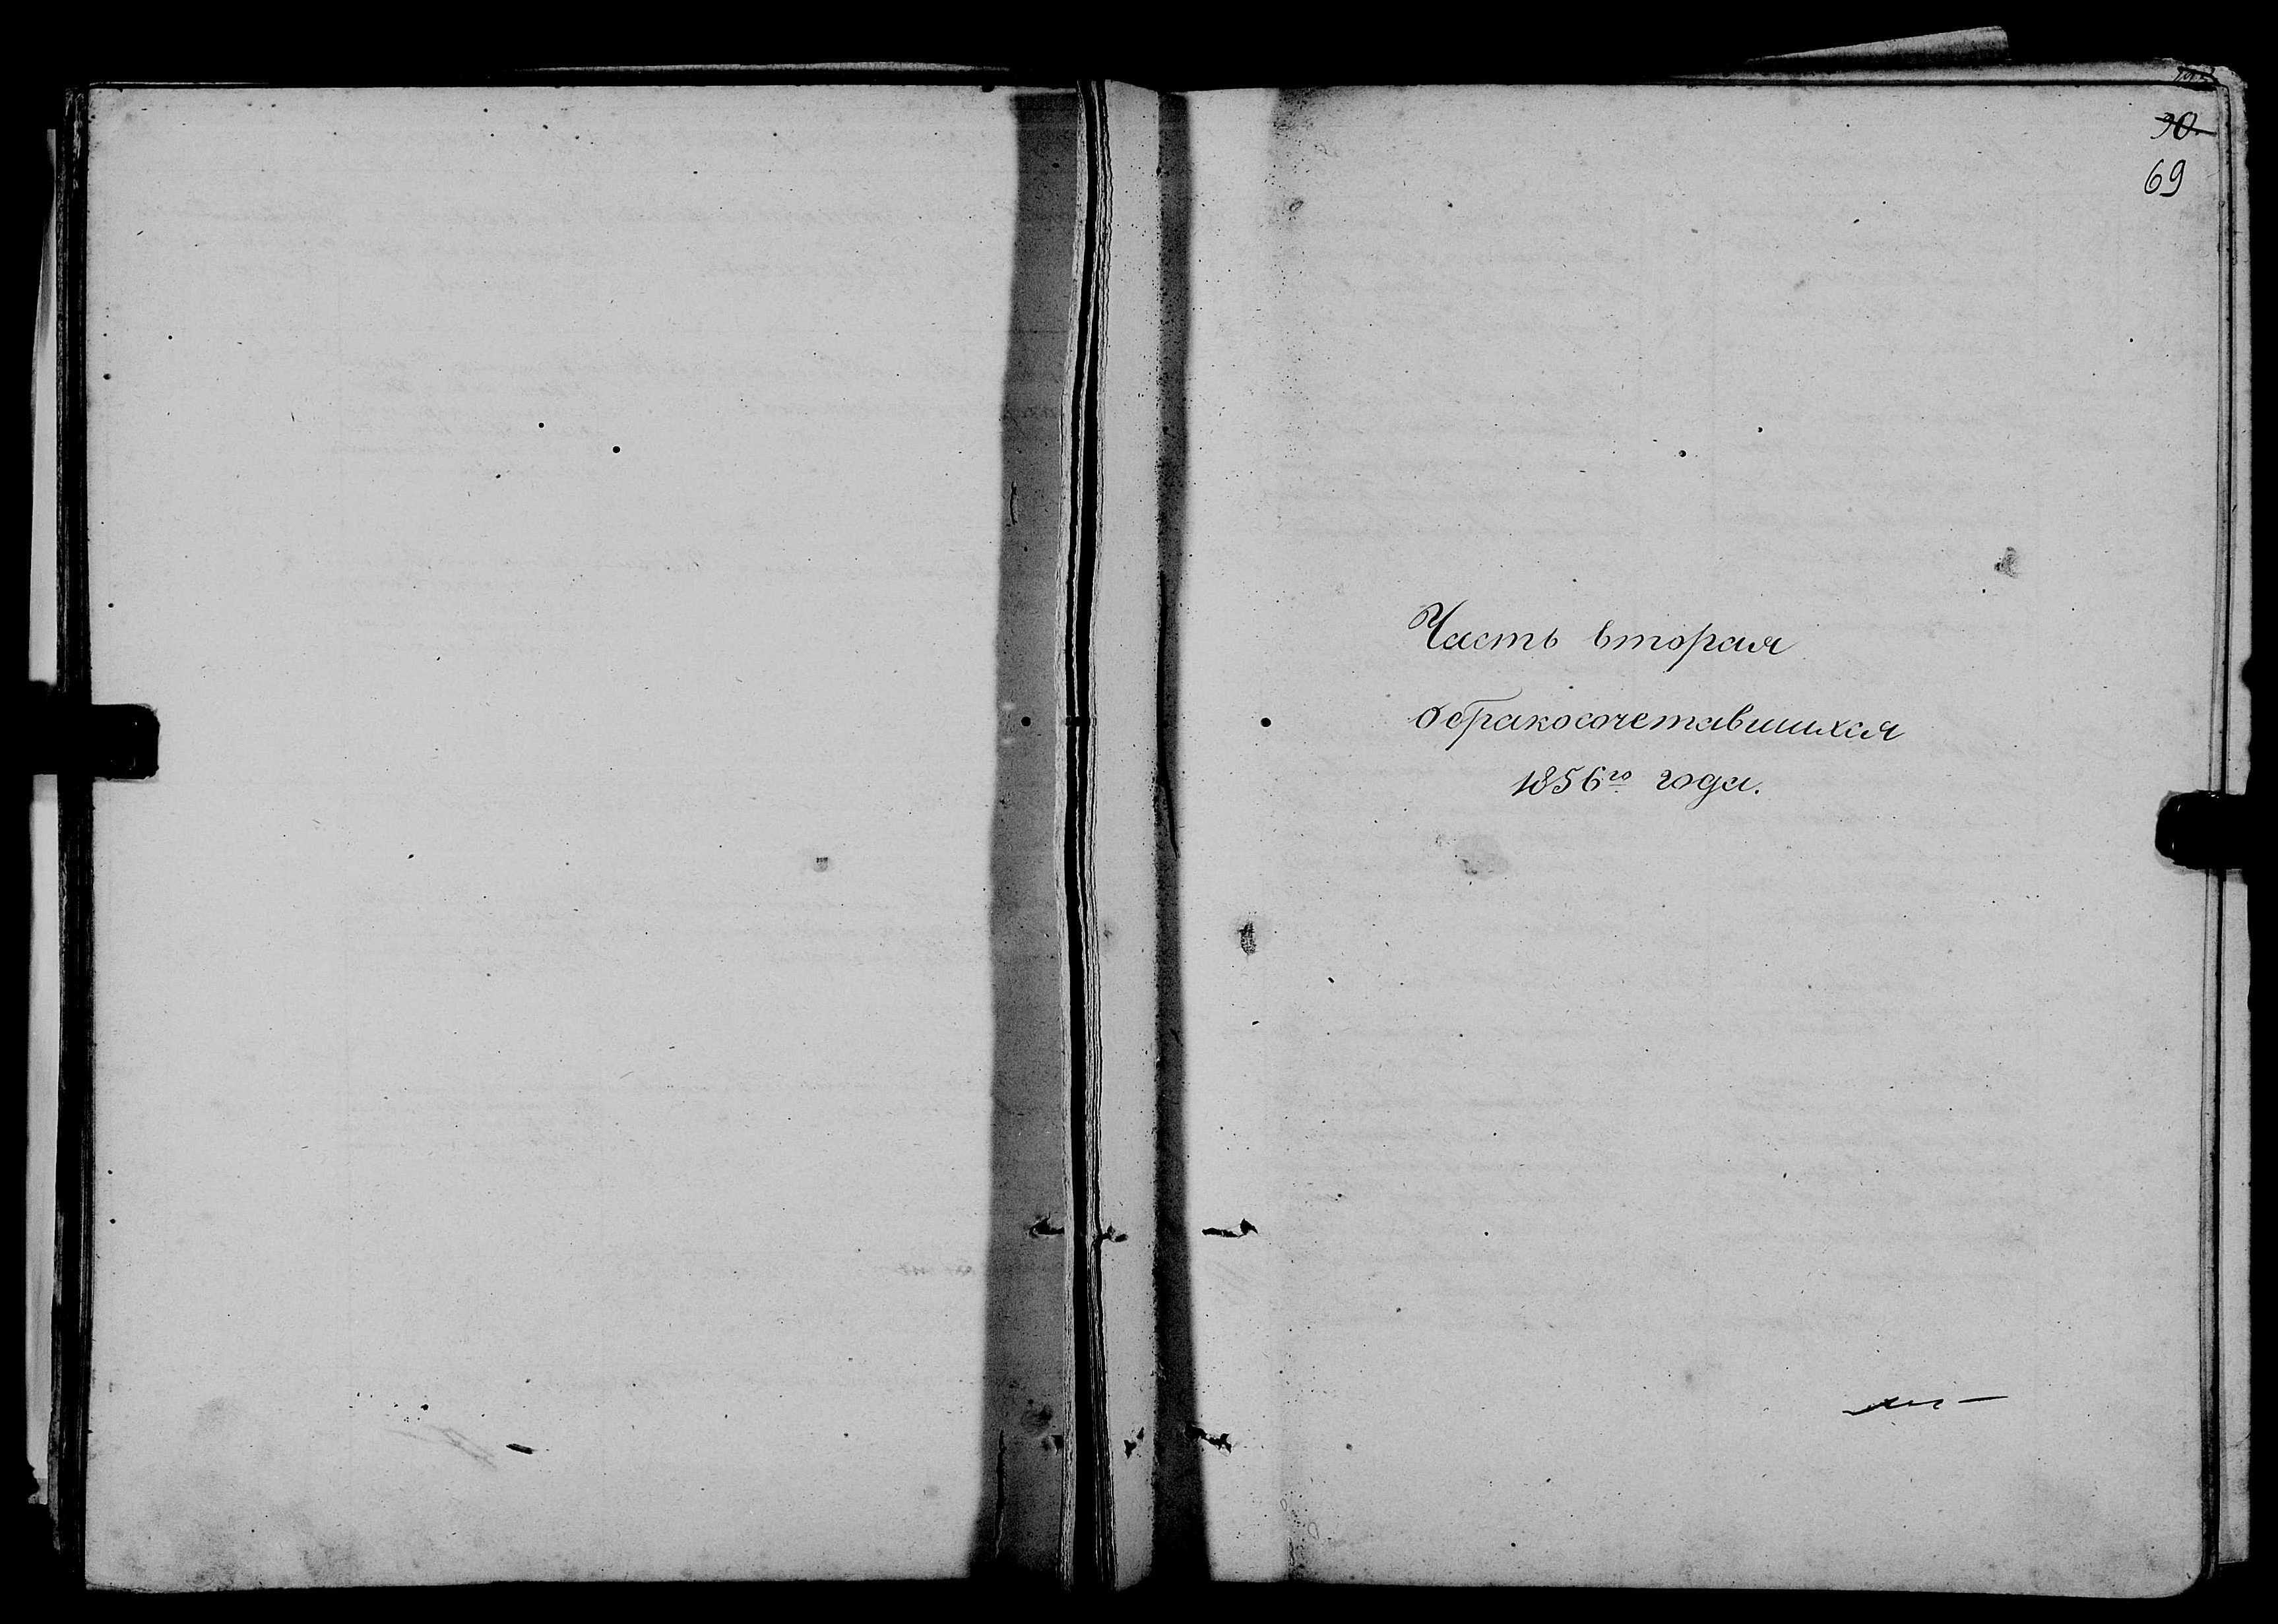 90.
69
Часть вторая
обракосочетавшихся
1856го года.